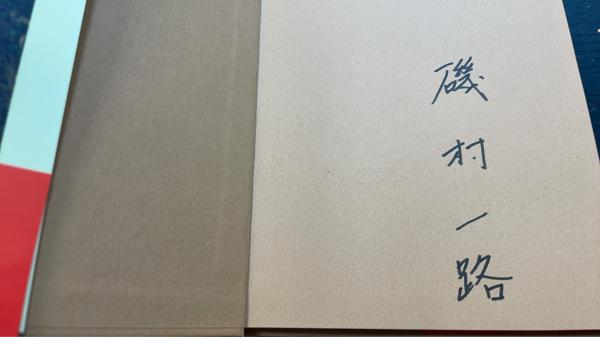 磯村一路